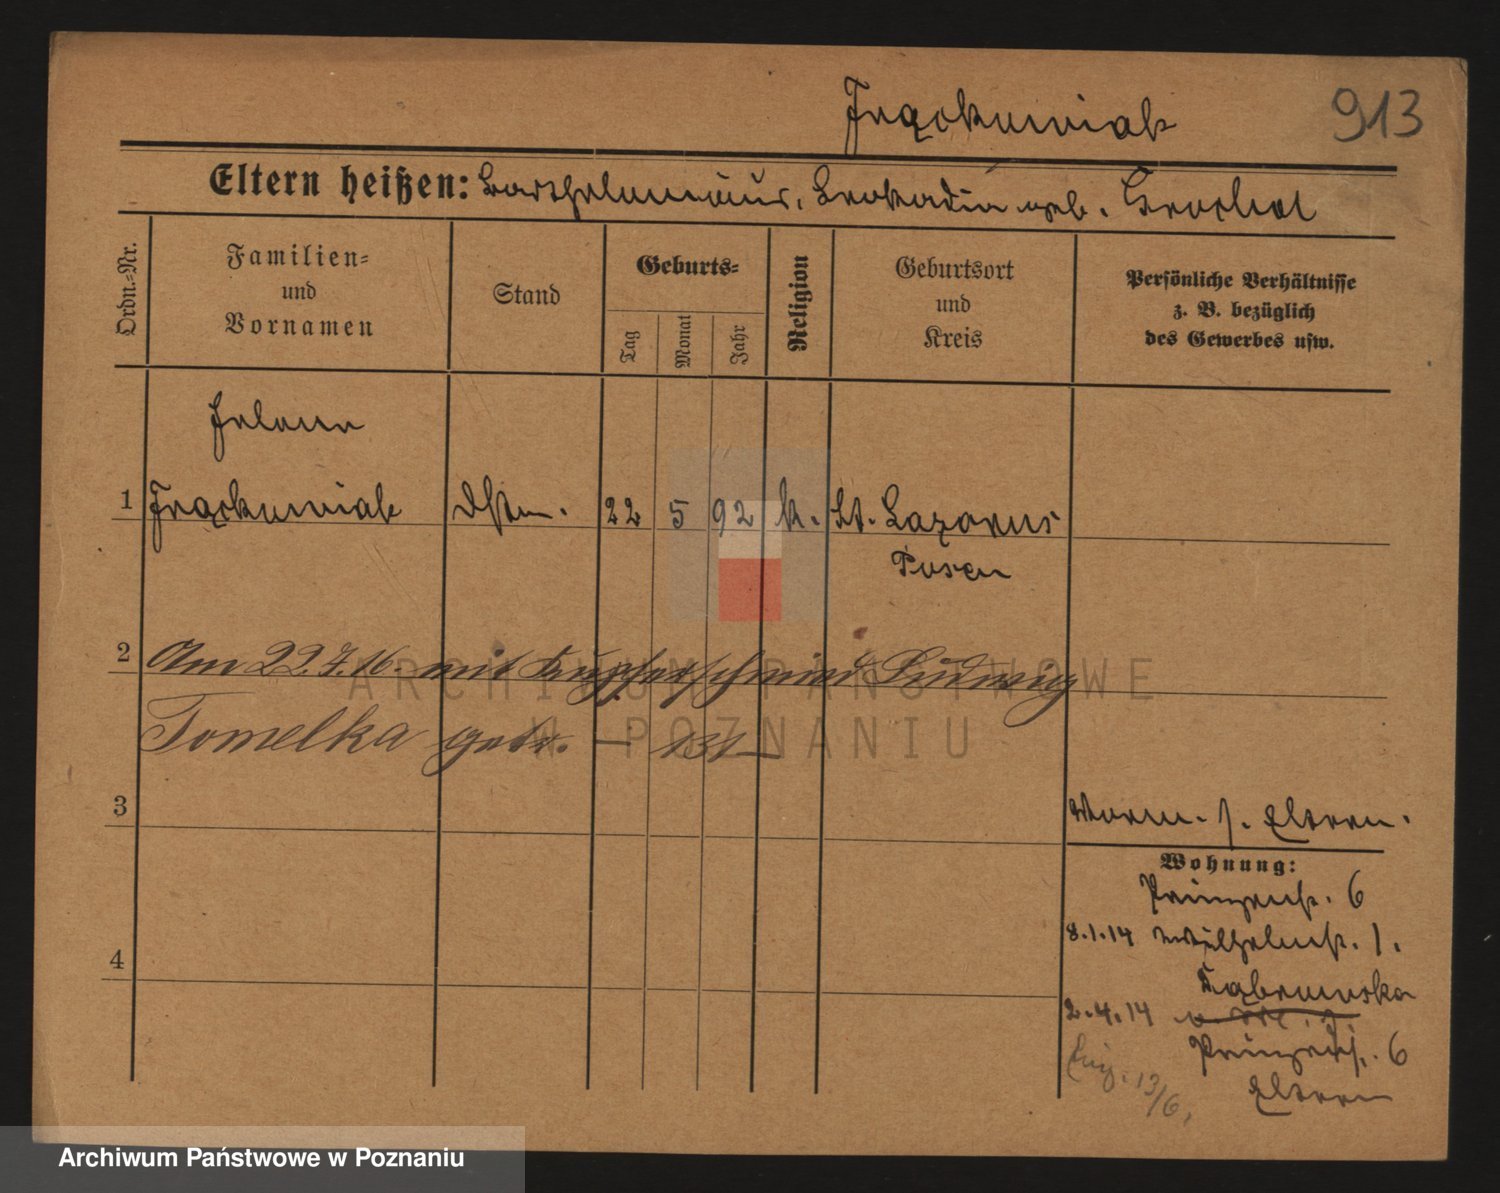 Frąckowiak 913
Eltern heißen: Bartholomäus, Leokadia geb. Grochol
Ordn.-Nr.
Familien-
und
Vornamen
Stand
Geburts-
Tag
Monat
Jahr
Religion
Geburtsort
und
Kreis
Persönliche Verhältnisse
z. B. bezüglich
des Gewerbes usw.
Helene
1 Frąckowiak 22 5 92 k. St. Lazarus
Posen
2 Am 22.7.16. mit Kupferschmied Ludwig
Tomelka getr. — 131 —
3
Eltern.
Wohnung:
Prinzenstr. 6
8.1.14 Wilhelmstr. 1.
Dąbrowska
4
2.4.14
Prinzenstr. 6
Eltern
13/6.
ARCHIWUM PAŃSTWOWE
W POZNANIU
Archiwum Państwowe w Poznaniu